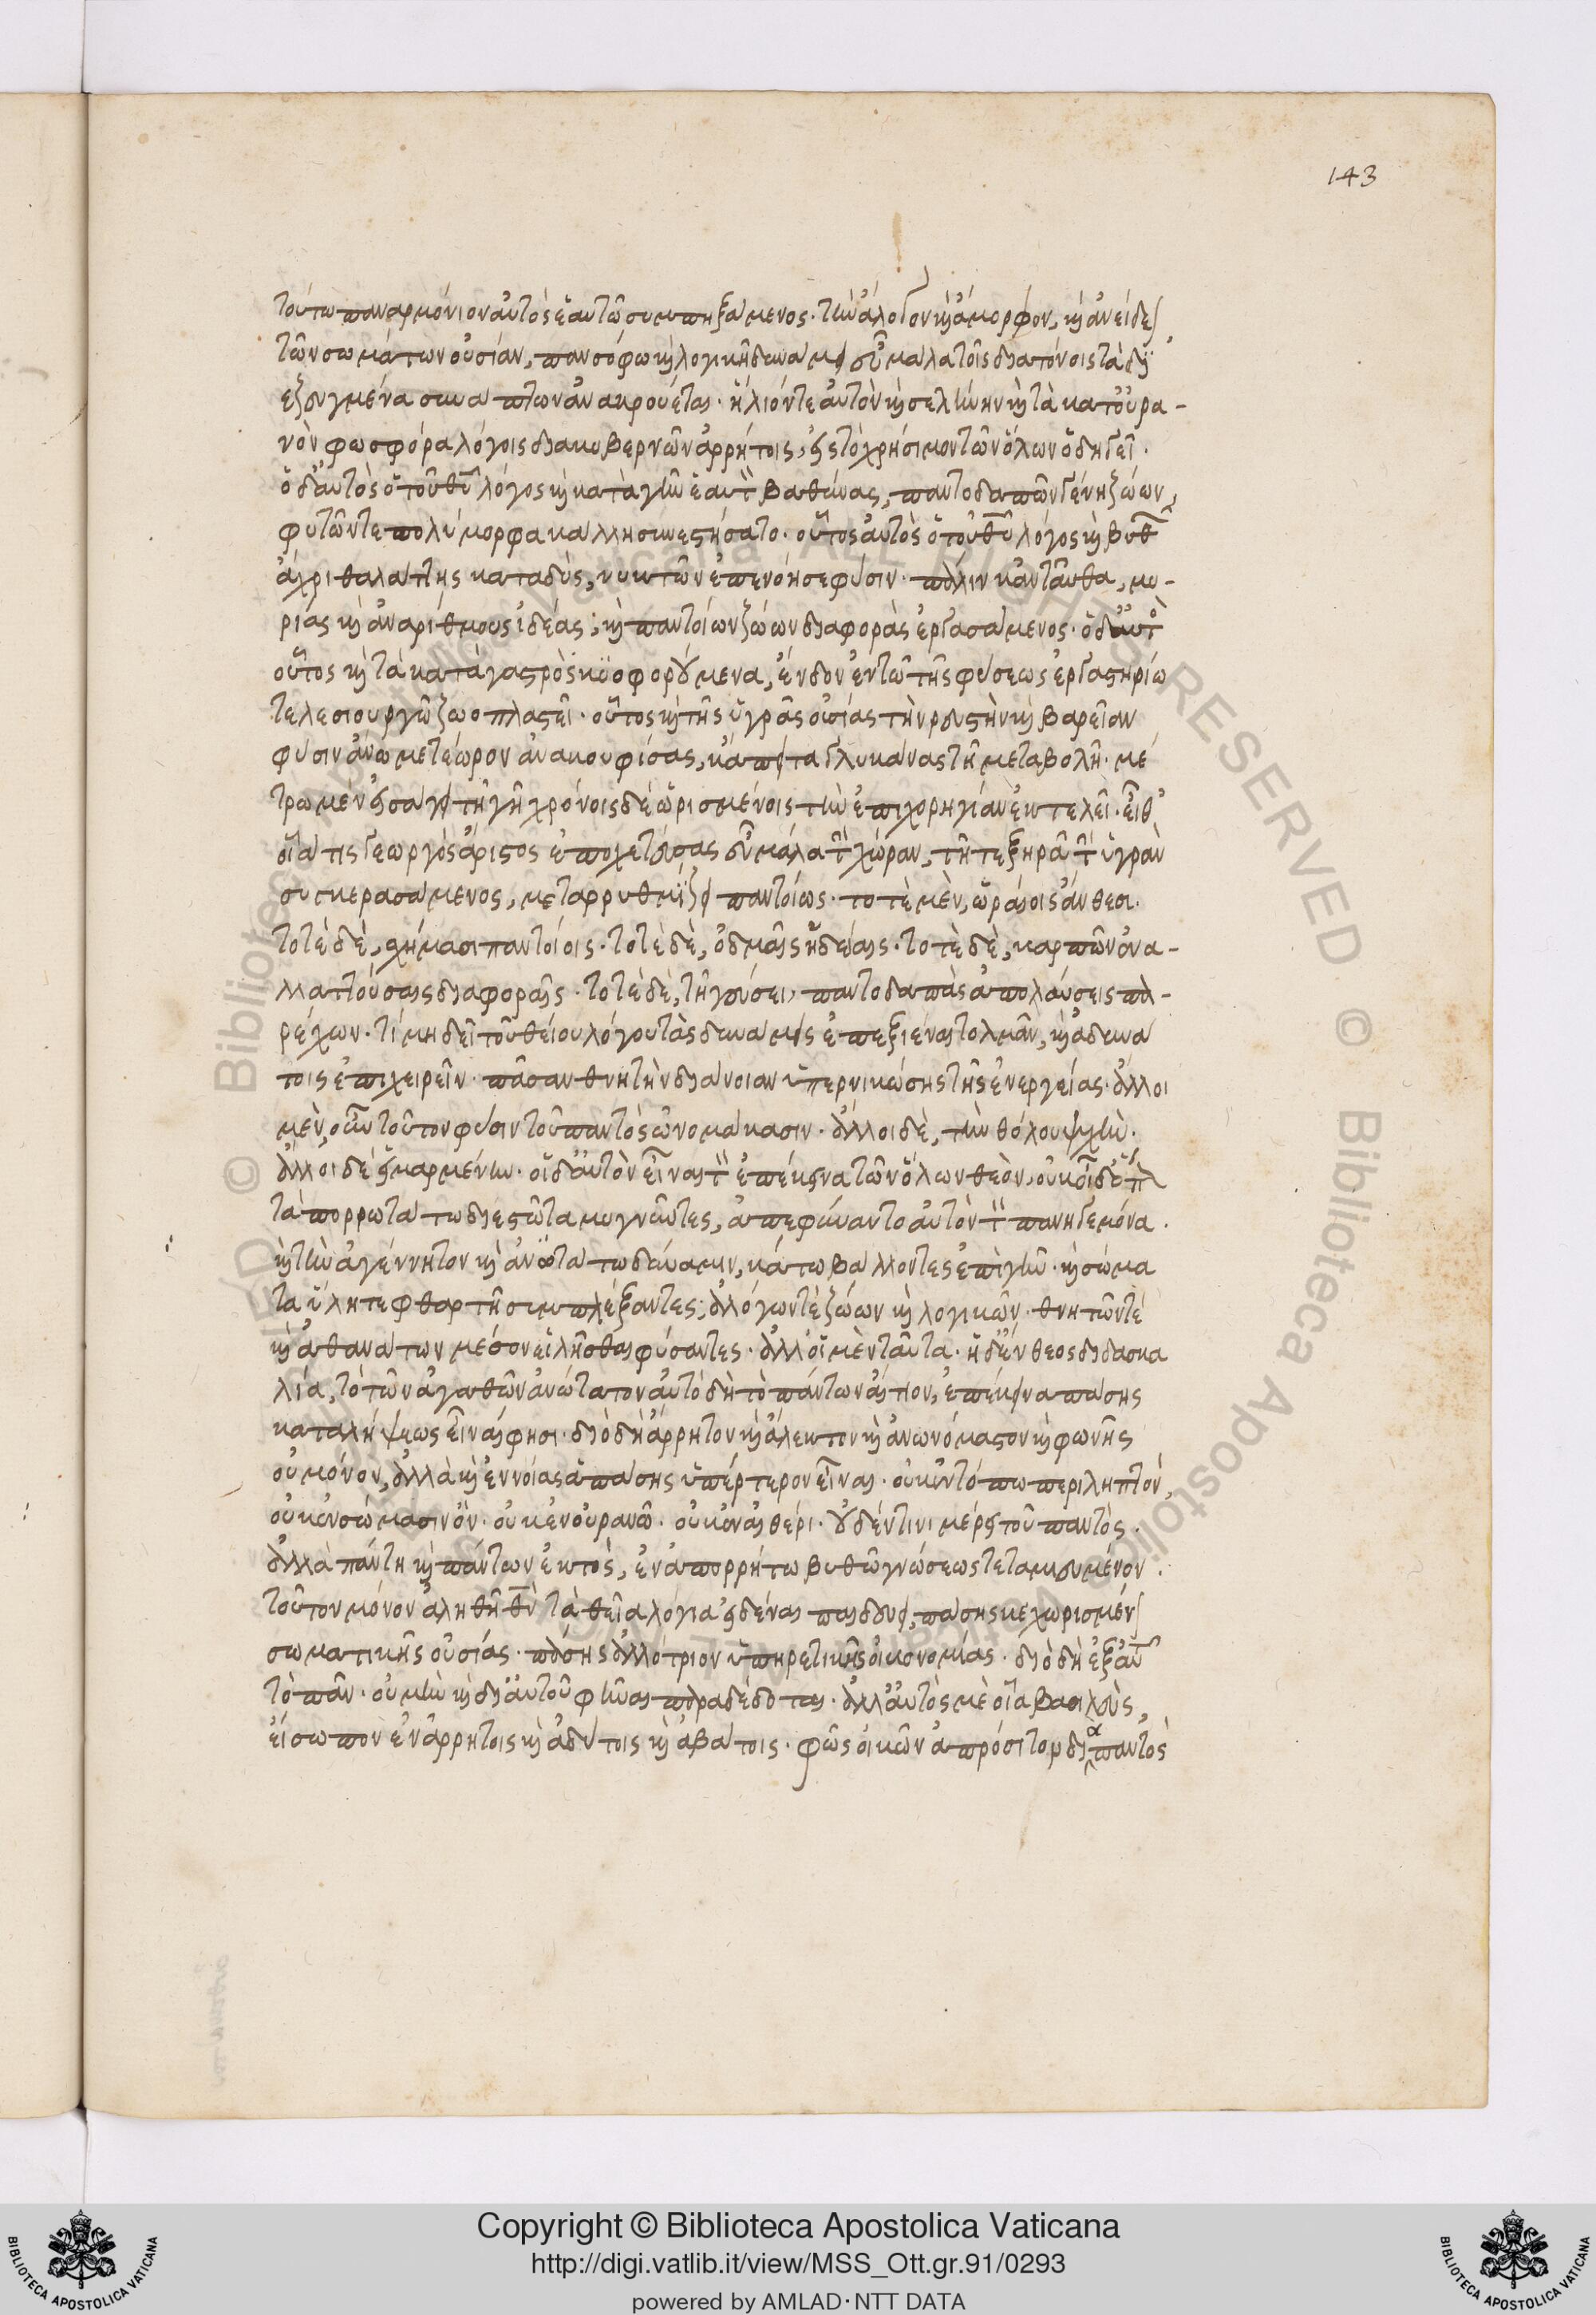 143
τούτω παναρμόνιον αὐτὸς ἑαυτῶ συμπηξάμενος. τὴν ἄλογον καὶ ἄμορφον, καὶ ἀνείδε
τῶν σωμάτων οὐσίαν, πανσόφω καὶ λογικῆ δυνάμει εὖ μάλα τοῖς διατόνοις τὰ δι
εζευγμένα συναπτων ἀνακρούεται. ἥλιόν τε αὐτὸν καὶ σελήνην καὶ τὰ κατ' οὐρα-
νὸν φωσφόρα λόγοις διακυβερνῶν ἀρρήτοις, εἰς τὸ χρήσιμον τῶν ὅλων ὁδηγεῖ.
ὁ δ' αὐτὸς ὁ τοῦ θυ λόγος καὶ κατὰ γῆν ἑαυτὸν βαθύνας, παντοδαπῶν γένη ζώων,
φυτῶν τε πολύμορφα κάλλη συνεστήσατο. οὗτος αὐτὸς ὁ τοῦ θυ λόγος καὶ βυθ
ἄχρι θαλάττης καταδὺς, νηκτῶν ἐπενόησε φύσιν. πάλιν κἀνταῦθα, μυ-
ρίας καὶ ἀναρίθμους ἰδέας, καὶ παντοίων ζώων διαφορὰς ἐργασάμενος. ὁ δ' αὐτὸς
οὗτος καὶ τὰ κατὰ γαστρὸς κυοφορούμενα, ἔνδον ἐν τῶ τῆς φύσεως ἐργαστηρίω
τελεσιουργῶ ζωοπλαστεῖ. οὗτος καὶ τῆς ὑγρᾶς οὐσίας τὴν ρευστὴν καὶ βαρεῖαν
φύσιν ἄνω μετέωρον ἀνακουφίσας, κάπειτα γλυκάνας τῆ μεταβολῆ. μέ
τρω μὲν εἰσάγει τῆ γῆ χρόνοις δὲ ὡρισμένοις τὴν ἐπιχορηγίαν ἐκτελεῖ. εἶθ'
οἷά τις γεωργὸς ἄριστος ἐποχετεύσας εὖ μάλα τὴν χώραν, τῆ τε ξηρᾶ τὴν ὑγρὰν
συγκερασάμενος, μεταρρυθμίζει παντοίως. τοτὲ μὲν, ὡραίοις ἄνθεσι.
τοτὲ δὲ, σχήμασι παντοίοις. τοτὲ δὲ, ὀδμαῖς ἡδείαις. τοτὲ δὲ, καρπῶν ἐνα-
λλαττούσαις διαφοραῖς. τοτὲ δὲ, τῆ γεύσει, παντοδαπὰς ἀπολαύσεις πα-
ρέχων. τί μη δεῖ τοῦ θείου λόγου τὰς δυνάμεις ἐπεξιέναι τολμᾶν, καὶ ἀδυνά
τοις ἐπιχειρεῖν. πᾶσαν θνητὴν διάνοιαν ὑπερνικώσης τῆς ἐνεργείας. ἄλλοι
μὲν, οὖν τοῦτον φύσιν τοῦ παντὸς ὠνομάκασιν. ἄλλοι δὲ, τὴν θόλου ψυχὴν.
ἄλλοι δὲ εἱμαρμένην. οἱ δ' αὐτὸν εἶναι τὸν ἐπέκεινα τῶν ὅλων θεὸν, οὐκ οἶδ' ὅπ
τὰ πορρωτάτω διεστῶτα μιγνῦντες, ἀπεφήναντο αὐτὸν τὸν πανηγεμόνα.
καὶ τὴν ἀγέννητον καὶ ἀνωτάτω δύναμιν, κάτω βάλλοντες ἐπὶ γῆν. καὶ σώμα
τα ὕλη τε φθαρτῆ συμπλέξαντες, ἀλόγων τὲ ζώων καὶ λογικῶν. θνητῶν τὲ
καὶ ἀθανάτων μέσον εἱλῆσθαι φύσαντες. ἀλλ' οἱ μὲν ταῦτα. ἡ δ' ἔνθεος διδασκα
λία, τὸ τῶν ἀγαθῶν ἀνώτατον αὐτὸ δὴ τὸ πάντων αἴτιον, ἐπέκεινα πάσης
καταλήψεως εἶναι φησι. διὸ δὴ ἄρρητον καὶ ἄλεκτον καὶ ἀνωνόμαστον καὶ φωνῆς
οὐ μόνον, ἀλλὰ καὶ ἐννοίας ἁπάσης ὑπέρτερον εἶναι. οὐκ ἐν τόπω περιληπτὸν,
οὐκ ἐν σώμασιν ὂν. οὐκ ἐν οὐρανῶ. οὐκ ἐν αἰθέρι. οὐδ' ἔν τινι μέρει τοῦ παντὸς.
ἀλλὰ πάντη καὶ πάντων ἐκτὸς, ἐν ἀπορρήτω βυθῶ γνώσεως τεταμιευμένον.
τοῦτον μόνον ἀληθῆ θν τὰ θεῖα λόγια εἰδέναι παιδεύει, πάσης κεχωρισμέν
σωματικῆς οὐσίας. πάσης ἀλλότριον ὑπηρετικῆς οἰκονομίας. διὸ δὴ ἐξ αὐτοῦ
τὸ πᾶν. οὐ μὴν καὶ δι' αὐτοῦ φῦναι παραδέδοται. ἀλλ' αὐτὸς μὲ οἷα βασιλεὺς,
εἴσω που ἐν ἀρρήτοις καὶ ἀδύτοις καὶ ἀβάτοις. φῶς οἰκῶν ἀπρόσιτον διαπαντὸς
Copyright © Biblioteca Apostolica Vaticana
http://digi.vatlib.it/view/MSS_Ott.gr.91/0293
powered by AMLAD·NTT DATA
BIBLIOTECA APOSTOLICA VATICANA
BIBLIOTECA APOSTOLICA VATICANA